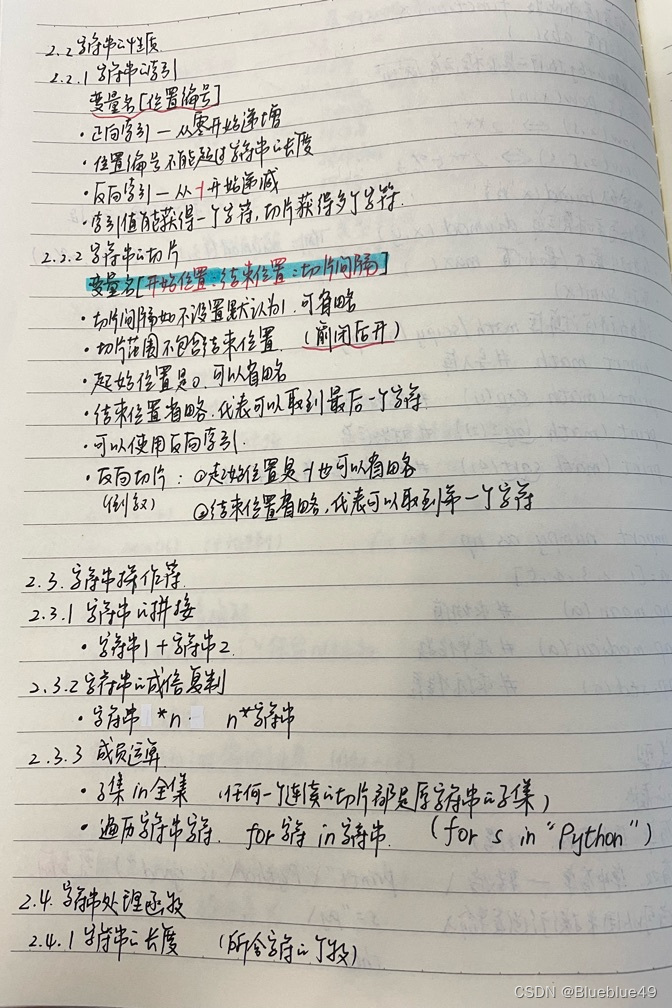 2.2 字符串的性质
2.2.1 字符串的索引
变量名[位置编号]
· 正向索引 — 从零开始递增
· 位置编号不能超过字符串的长度
· 反向索引 — 从-1开始递减
· 索引值能获得一个字符,切片获得多个字符.
2.2.2 字符串的切片
变量名[开始位置:结束位置:切片间隔]
· 切片间隔如不设置默认为1,可省略
· 切片范围不包含结束位置. (前闭后开)
· 起始位置是0,可以省略
· 结束位置省略,代表可以取到最后一个字符
· 可以使用反向索引.
· 反向切片: ①起始位置是-1也可以省略
(倒数) ②结束位置省略,代表可以取到第一个字符
2.3. 字符串操作符.
2.3.1 字符串的拼接
· 字符串1 + 字符串2.
2.3.2 字符串的成倍复制
· 字符串 *n · n*字符串
2.3.3 成员运算
· 子集 in 全集 (任何一个连续的切片都是原字符串的子集)
· 遍历字符串字符. for 字符 in 字符串. (for s in "Python")
2.4. 字符串处理函数
2.4.1 字符串的长度 (所含字符的个数)
CSDN @Blueblue49